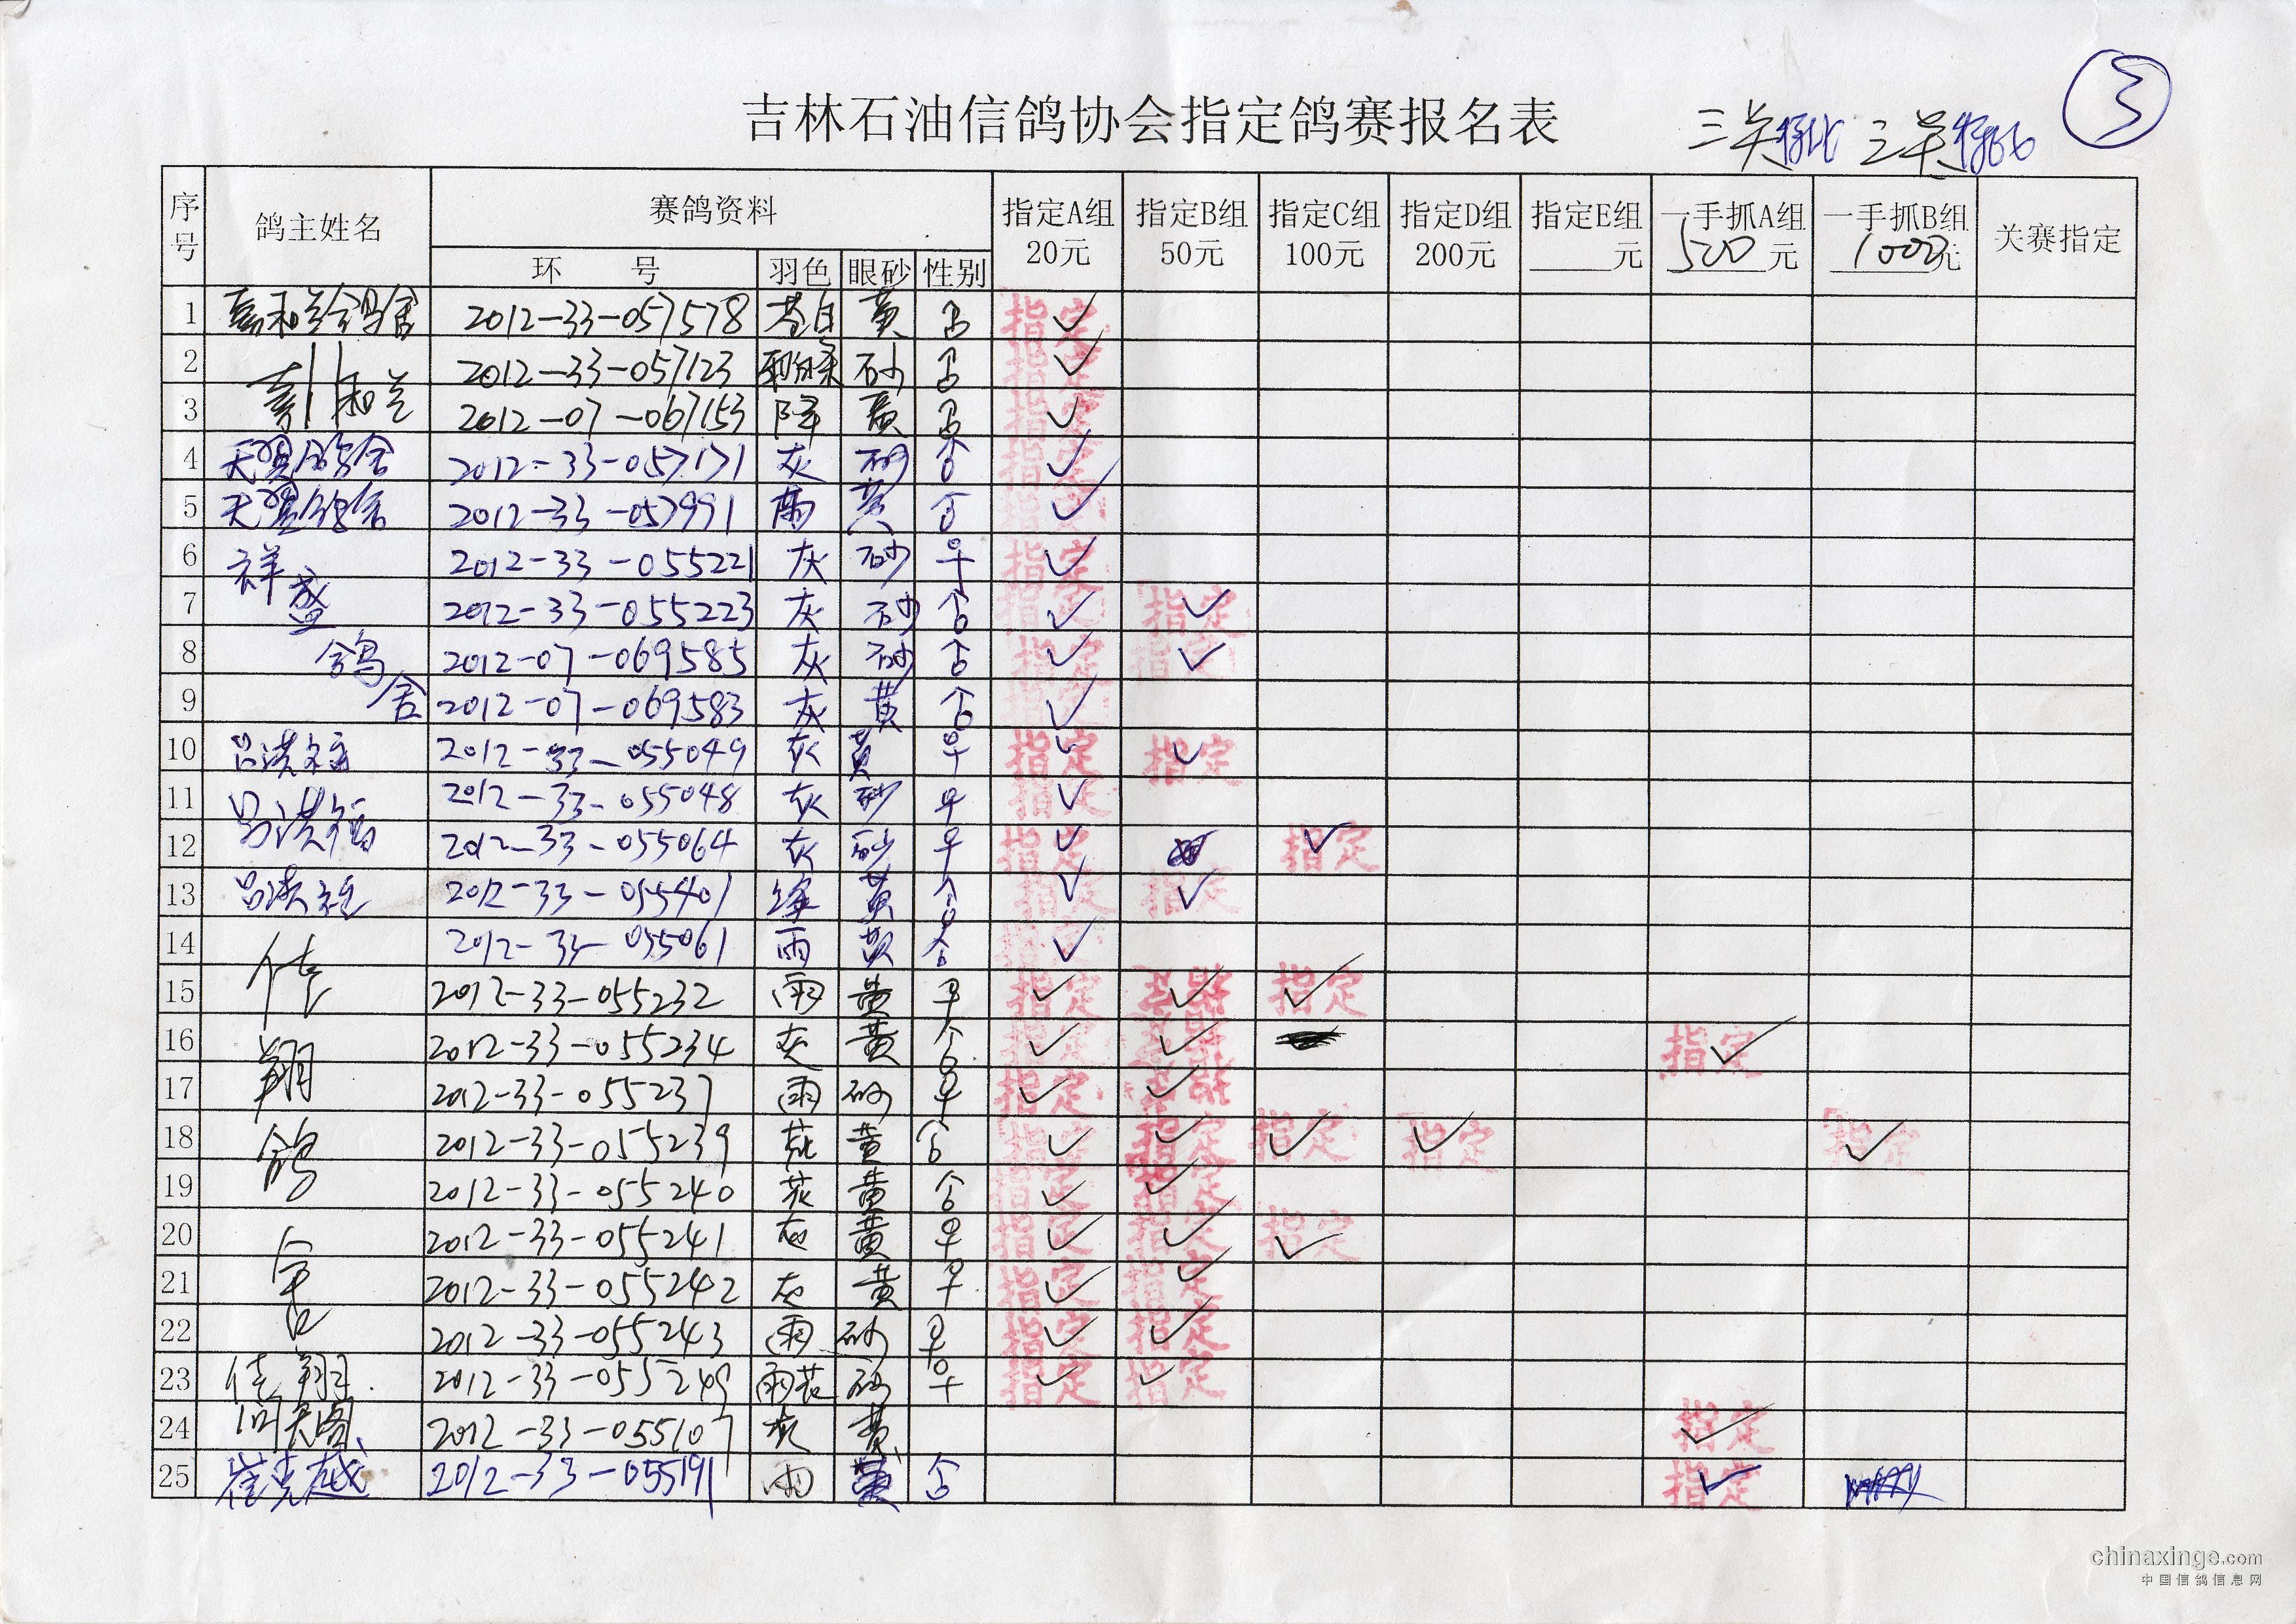 吉林石油信鸽协会指定鸽赛报名表
三关 三关
3
序号 鸽主姓名 赛鸽资料 指定A组 20元 指定B组 50元 指定C组 100元 指定D组 200元 指定E组 ____元 一手抓A组 500元 一手抓B组 1000元 关赛指定
环 号 羽色 眼砂 性别
1 2012-33-057578 黄 指定 ✓
2 2012-33-057123 砂 指定 ✓
3 2012-07-067153 黄 指定 ✓
4 天翼鸽舍 2012-33-057171 灰 砂 指定 ✓
5 天翼鸽舍 2012-33-057991 黄 指定 ✓
6 祥 2012-33-055221 灰 砂 ♀ 指定 ✓
7 盛 2012-33-055223 灰 砂 指定 ✓ 指定 ✓
8 鸽 2012-07-069585 灰 砂 指定 ✓ 指定 ✓
9 舍 2012-07-069583 灰 黄 指定 ✓
10 2012-33-055049 灰 黄 ♀ 指定 ✓ 指定 ✓
11 吕洪福 2012-33-055048 灰 砂 ♀ 指定 ✓
12 2012-33-055064 灰 砂 ♀ 指定 ✓ 指定 ✓
13 2012-33-055401 绛 黄 指定 ✓ 指定 ✓
14 佳 2012-33-055061 雨 黄 指定 ✓
15 2012-33-055232 雨 黄 ♀ 指定 ✓ 指定 ✓ 指定 ✓
16 翔 2012-33-055234 灰 黄 指定 ✓ 指定 ✓ 指定 ✓
17 2012-33-055237 雨 砂 ♀ 指定 ✓ 指定 ✓
18 鸽 2012-33-055239 花 黄 指定 ✓ 指定 ✓ 指定 ✓ 指定 ✓ 指定 ✓
19 2012-33-055240 花 黄 指定 ✓ 指定 ✓
20 舍 2012-33-055241 灰 黄 ♀ 指定 ✓ 指定 ✓ 指定 ✓
21 2012-33-055242 灰 黄 ♀ 指定 ✓ 指定 ✓
22 2012-33-055243 雨 砂 ♀ 指定 ✓ 指定 ✓
23 佳翔 2012-33-055249 雨花 砂 ♀ 指定 ✓ 指定 ✓
24 2012-33-055107 灰 黄 指定 ✓
25 崔克越 2012-33-055191 雨 黄 指定 ✓
chinaxinge.com
中国信鸽信息网